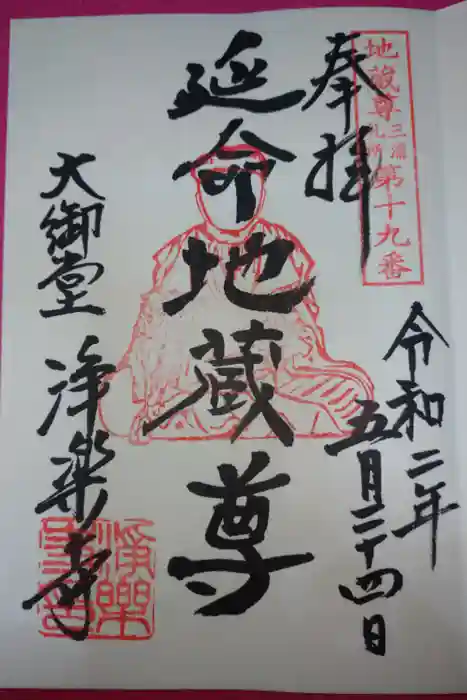 奉拝
地蔵尊三浦札所第十九番
令和二年
五月二十四日
延命地蔵尊
大御堂
浄楽寺